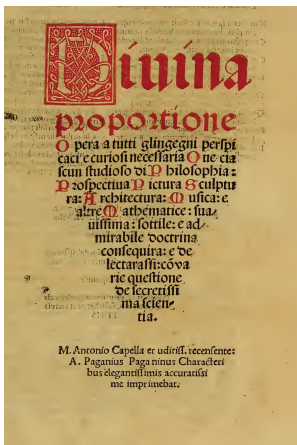 Diuina
proportione
Opera a tutti glingegni perspi
caci e curiosi necessaria Oue cia
scun studioso di Philosophia:
Prospectiua Pictura Sculptu
ra: Architectura: Musica: e
altre Mathematice: sua
uissima: sottile: e ad
mirabile doctrina
consequira: e de
lectarassi: cõ va
rie questione
de secretissi
ma scien
tia.
M. Antonio Capella et uditiss. recensente:
A. Paganius Paganinus Characteri
bus elegantissimis accuratissi
me imprimebat.